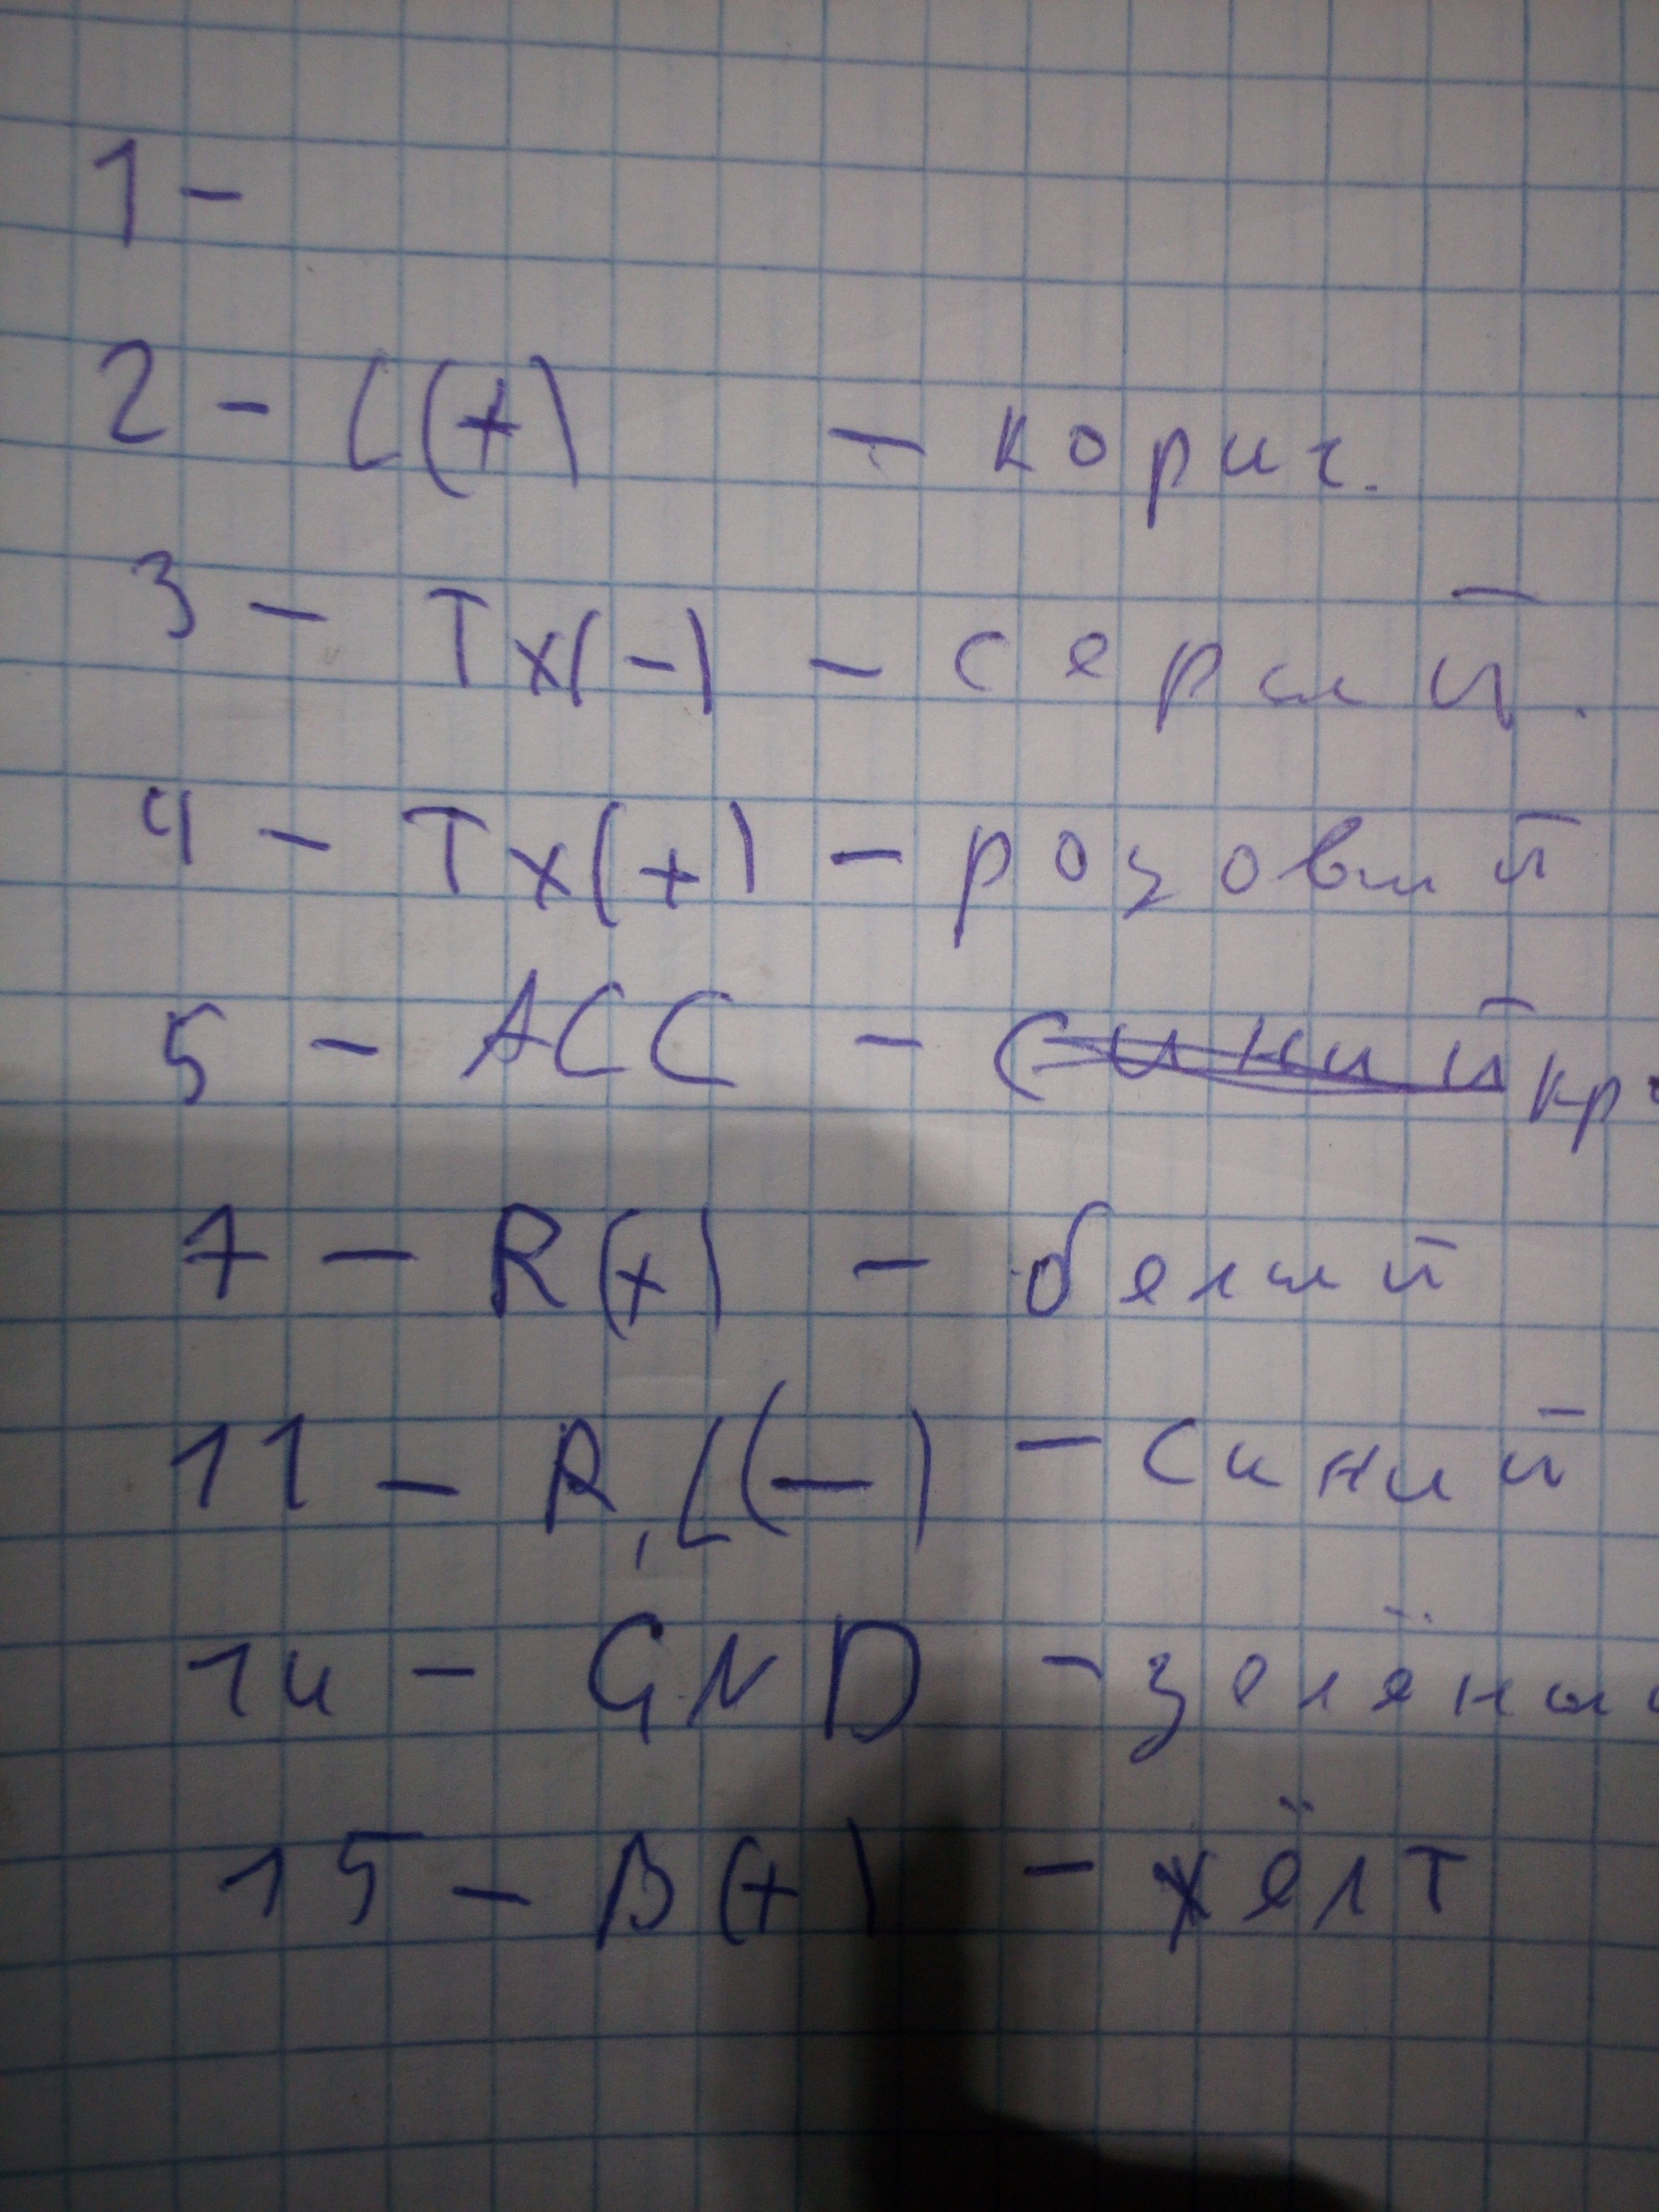 1 -
2 - L(+) - корич.
3 - Tx(-) - серый.
4 - Tx(+) - розовый
5 - ACC - синий кр
7 - R(+) - белый
11 - R,L(-) - синий
14 - GND - зелёный
15 - B(+) - жёлт